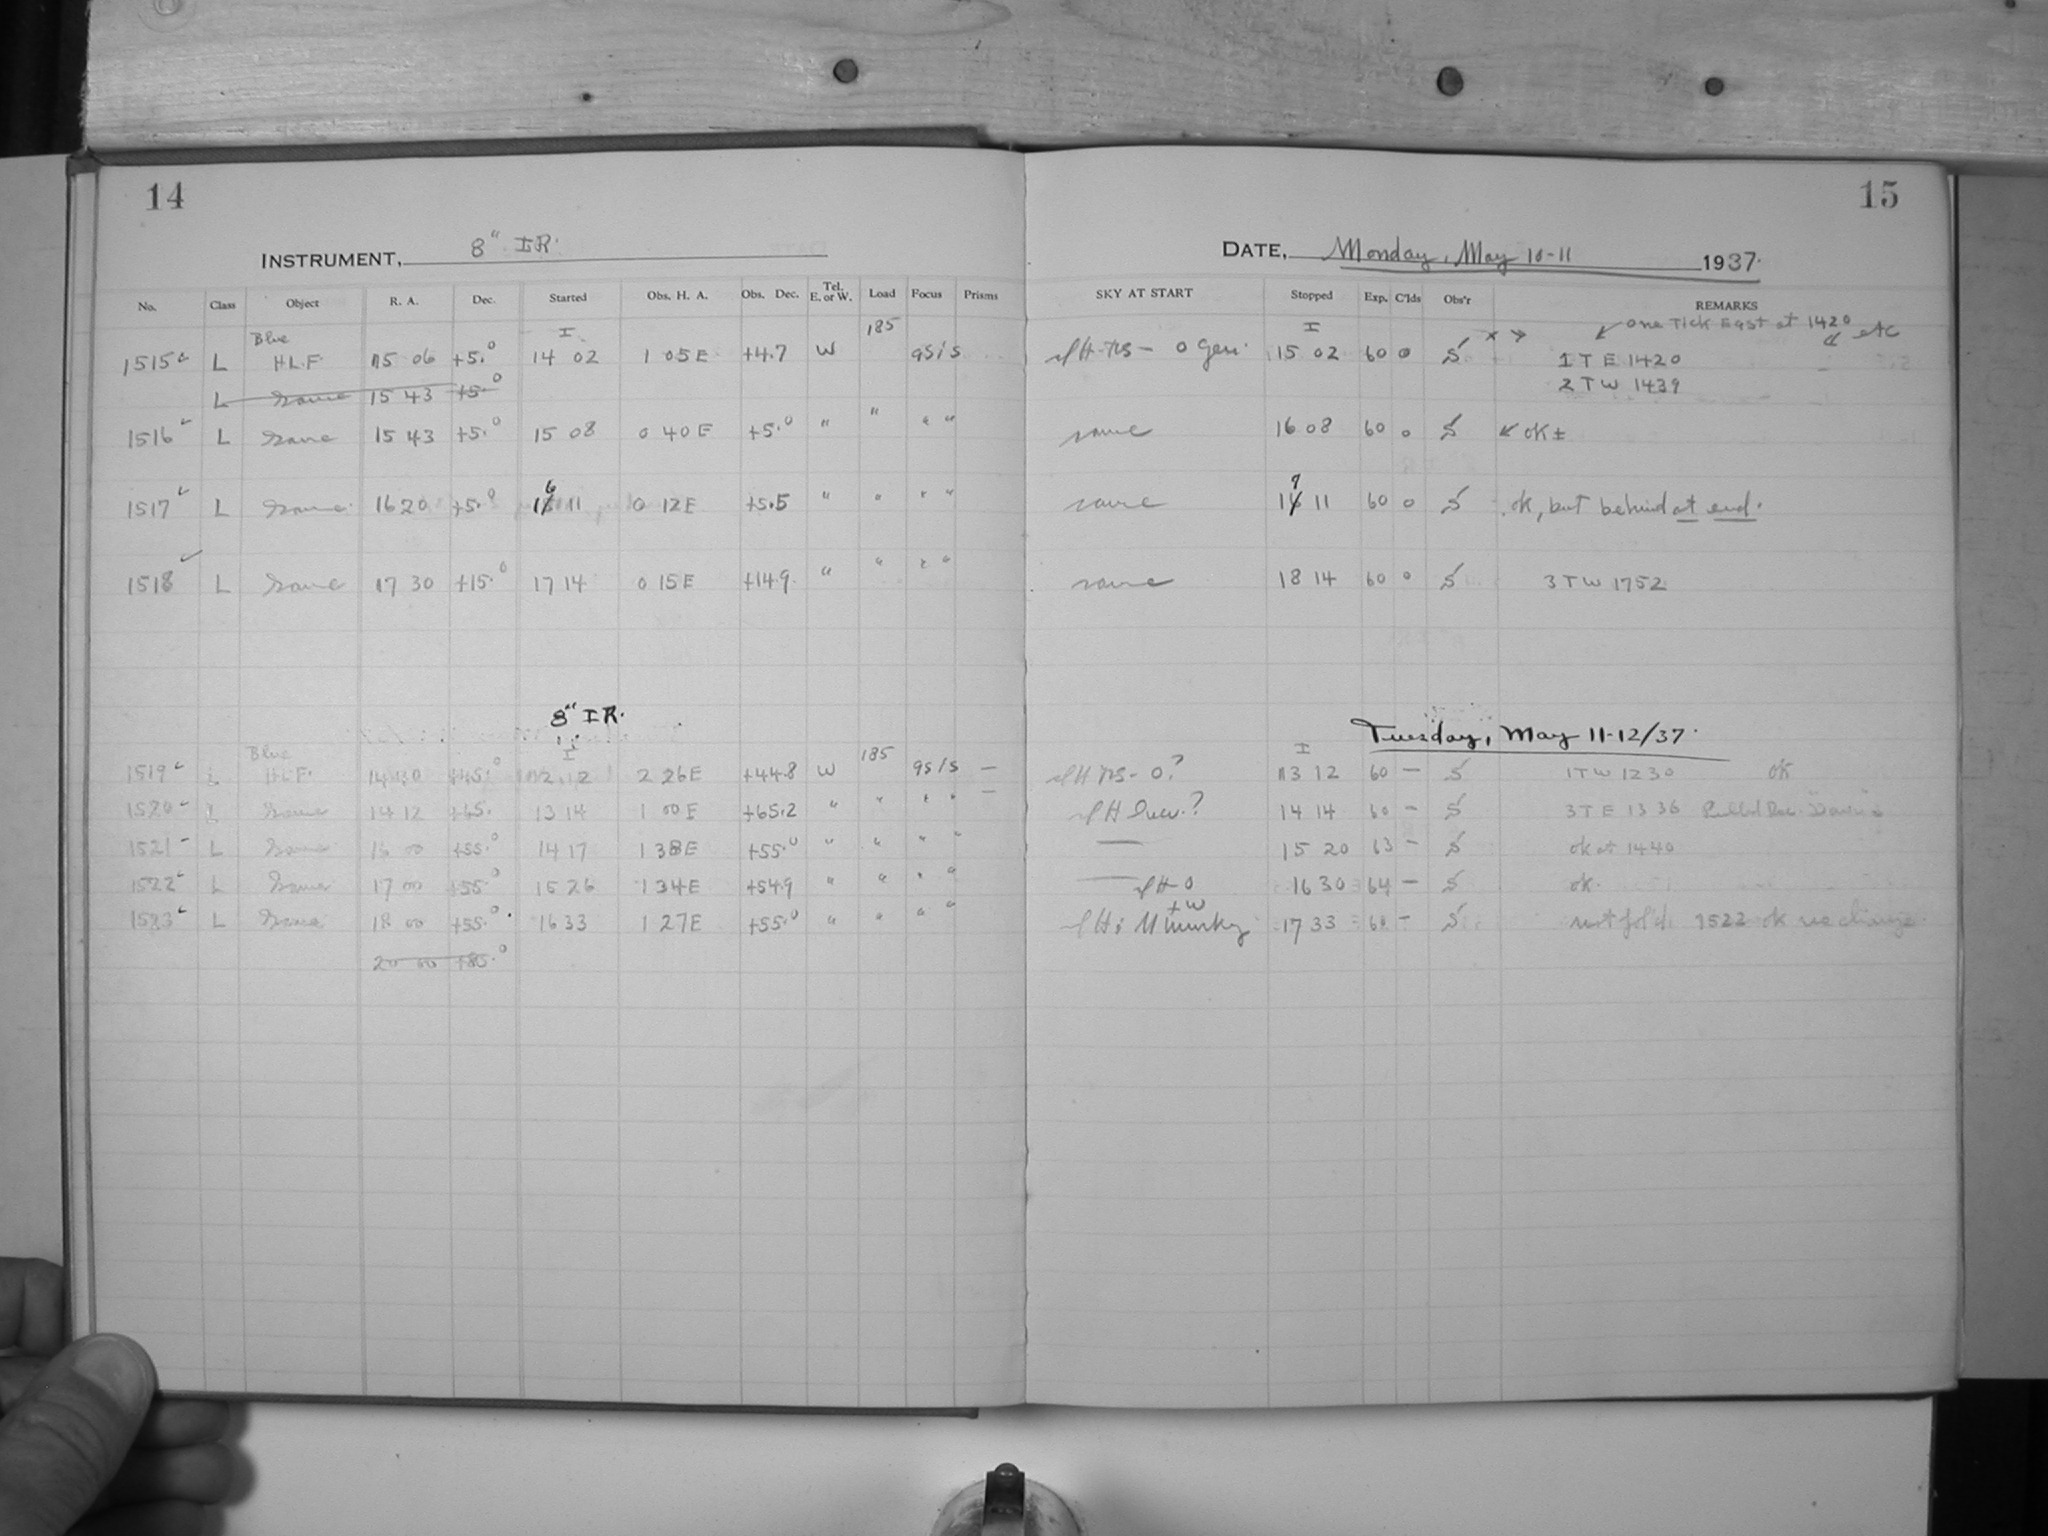 14
INSTRUMENT, 8" IR.
No. Class Object R. A. Dec. Started Obs. H. A. Obs. Dec. Tel. E. or W. Load Focus Prisms
Blue I 185
1515 L H.L.F 15 06 +5.0 14 02 1 05 E +4.7 W 95/5
L Same 15 43 +5.0
1516 L Same 15 43 +5.0 15 08 0 40 E +5.0 " " " "
1517 L Same 16 20 +5.0 16 11 0 12 E +5.5 " " " "
1518 L Same 17 30 +15.0 17 14 0 15 E +14.9 " " " "
8" IR.
Blue I 185
1519 L H.L.F. 14 40 +45.0 12 12 2 26 E +44.8 W 95/5 —
1520 L Same 14 12 +65. 13 14 1 00 E +65.2 " " " " —
1521 L Same 16 00 +55.0 14 17 1 38 E +55.0 " " " "
1522 L Same 17 00 +55.0 15 26 1 34 E +54.9 " " " "
1523 L Same 18 00 +55.0 16 33 1 27 E +55.0 " " " "
20 00 +80.0
15
DATE, Monday, May 10-11 1937.
SKY AT START Stopped Exp. C'lds Obs'r REMARKS
I one Tick East at 1420 etc
15 02 60 0 S 1 T E 1420
2 T W 1439
same 16 08 60 0 S ok ±
same 17 11 60 0 S ok, but behind at end.
same 18 14 60 0 S 3 T W 1752
Tuesday, May 11-12/37.
I
13 12 60 — S 1 T W 1230 ok
14 14 60 — S 3 T E 1336
— 15 20 63 — S ok at 1440
— 16 30 64 — S ok.
+W
murky 17 33 60 — S not fol'd. 1522 ok no change